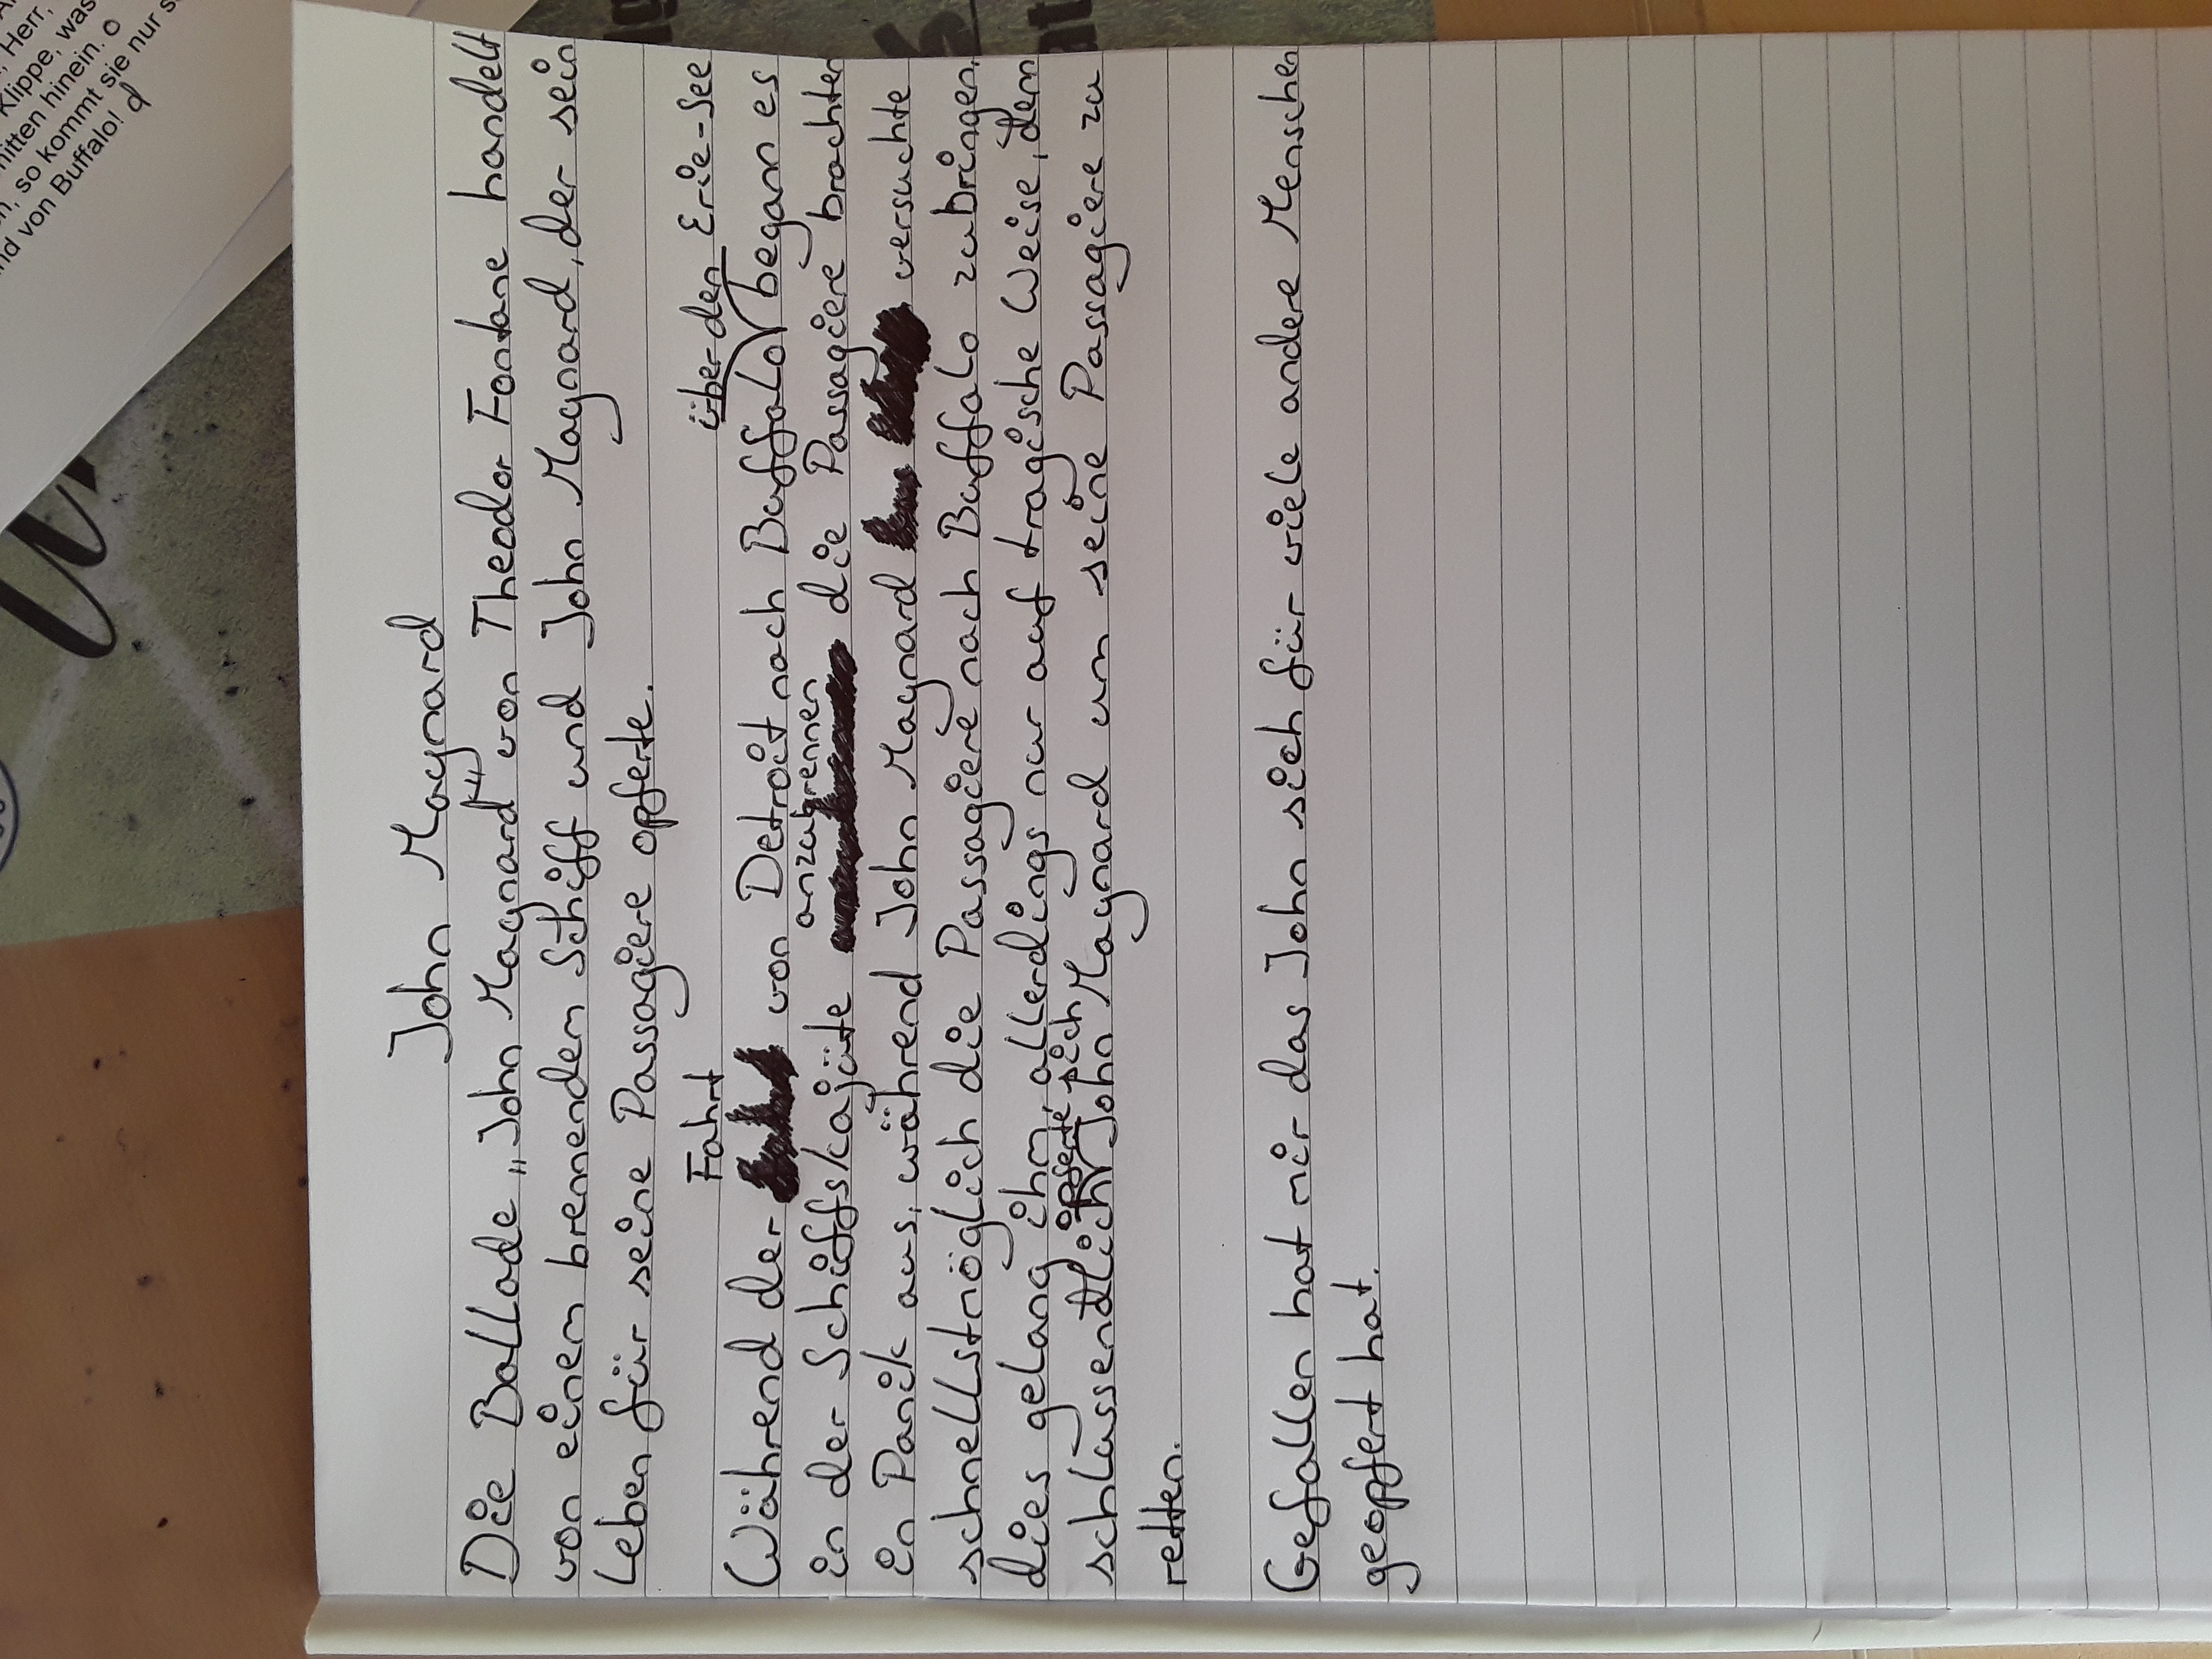 John Maynard
Die Ballade „John Maynard" von Theodor Fontane handelt
von einem brennenden Schiff und John Maynard, der sein
Leben für seine Passagiere opferte.
Fahrt über den Erie-See
Während der von Detroit nach Buffalo begann es
anzubrennen
in der Schiffskajüte die Passagiere brachten
in Panik aus, während John Maynard versuchte
schnellstmöglich die Passagiere nach Buffalo zubringen,
dies gelang ihm, allerdings nur auf tragische Weise, dem
opferte sich
schlussendlich John Maynard um seine Passagiere zu
retten.
Gefallen hat mir das John sich für viele andere Menschen
geopfert hat.
Herr,
Klippe, was
mitten hinein.
so kommt sie nur
von Buffalo!